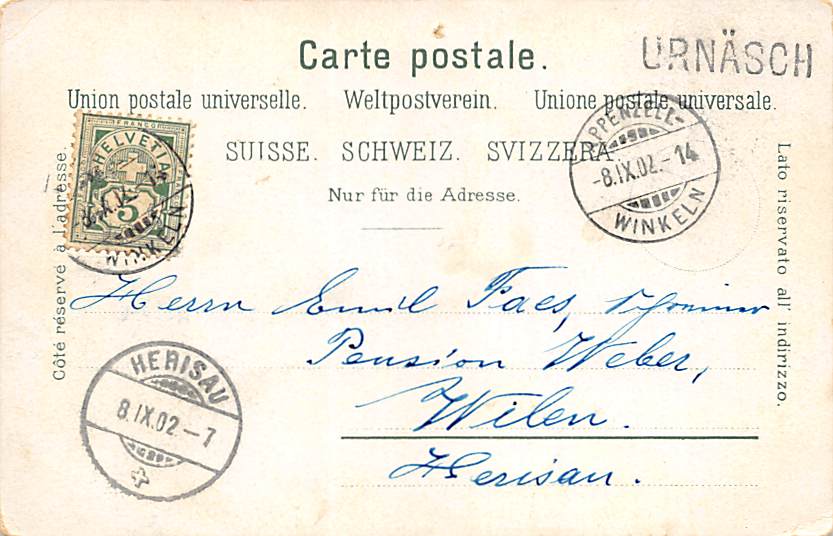 Carte postale.
URNÄSCH
Union postale universelle. Weltpostverein. Unione postale universale.
SUISSE. SCHWEIZ. SVIZZERA
Nur für die Adresse.
Côté réservé à l'adresse.
Lato riservato all' indirizzo.
FRANCO
HELVETIA
5
WINKELN
APPENZELL-
-8.IX.02.-14
WINKELN
Herrn Emil Faes,
Pension Weber,
Wilen.
Herisau.
HERISAU
8.IX.02.-7